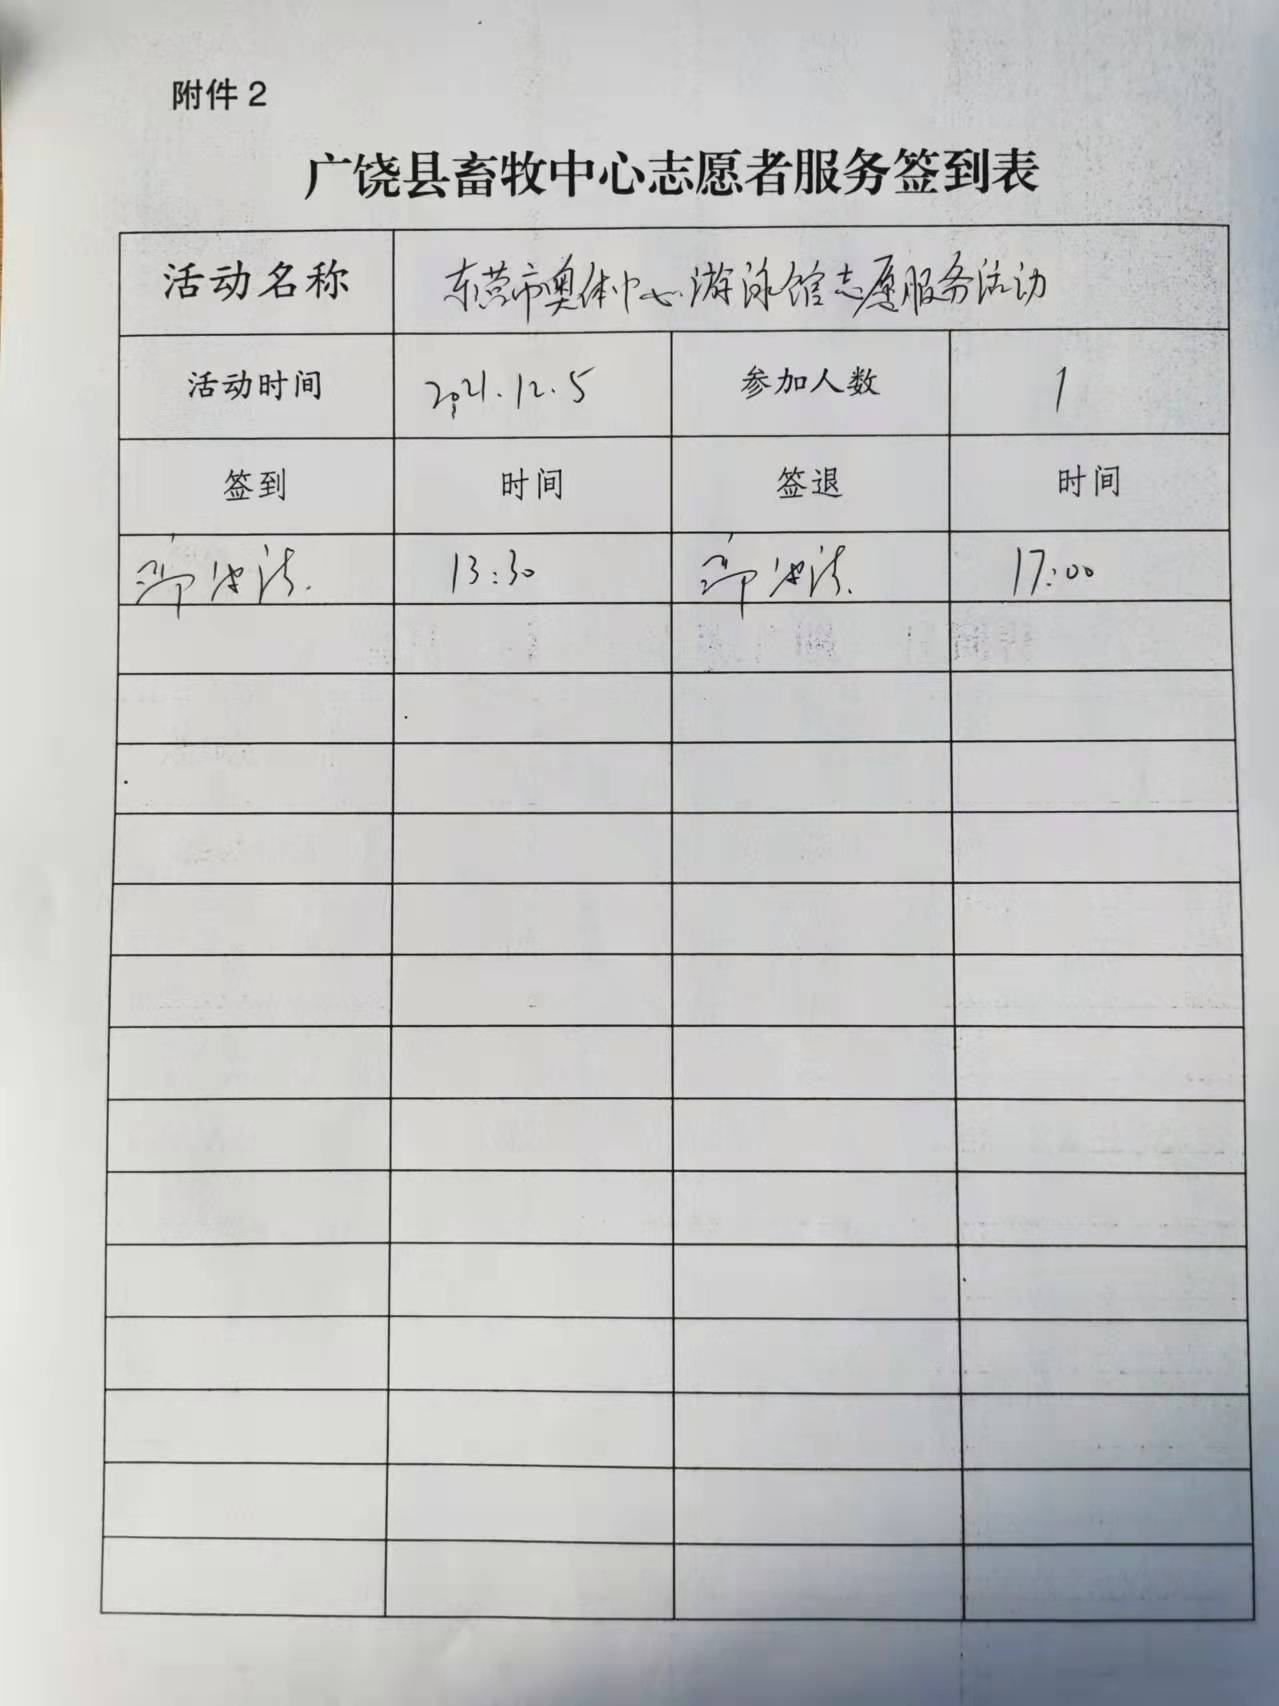 附件2
广饶县畜牧中心志愿者服务签到表
活动名称 东营市奥体中心游泳馆志愿服务活动
活动时间 2021.12.5 参加人数 1
签到 时间 签退 时间
13:30 17:00